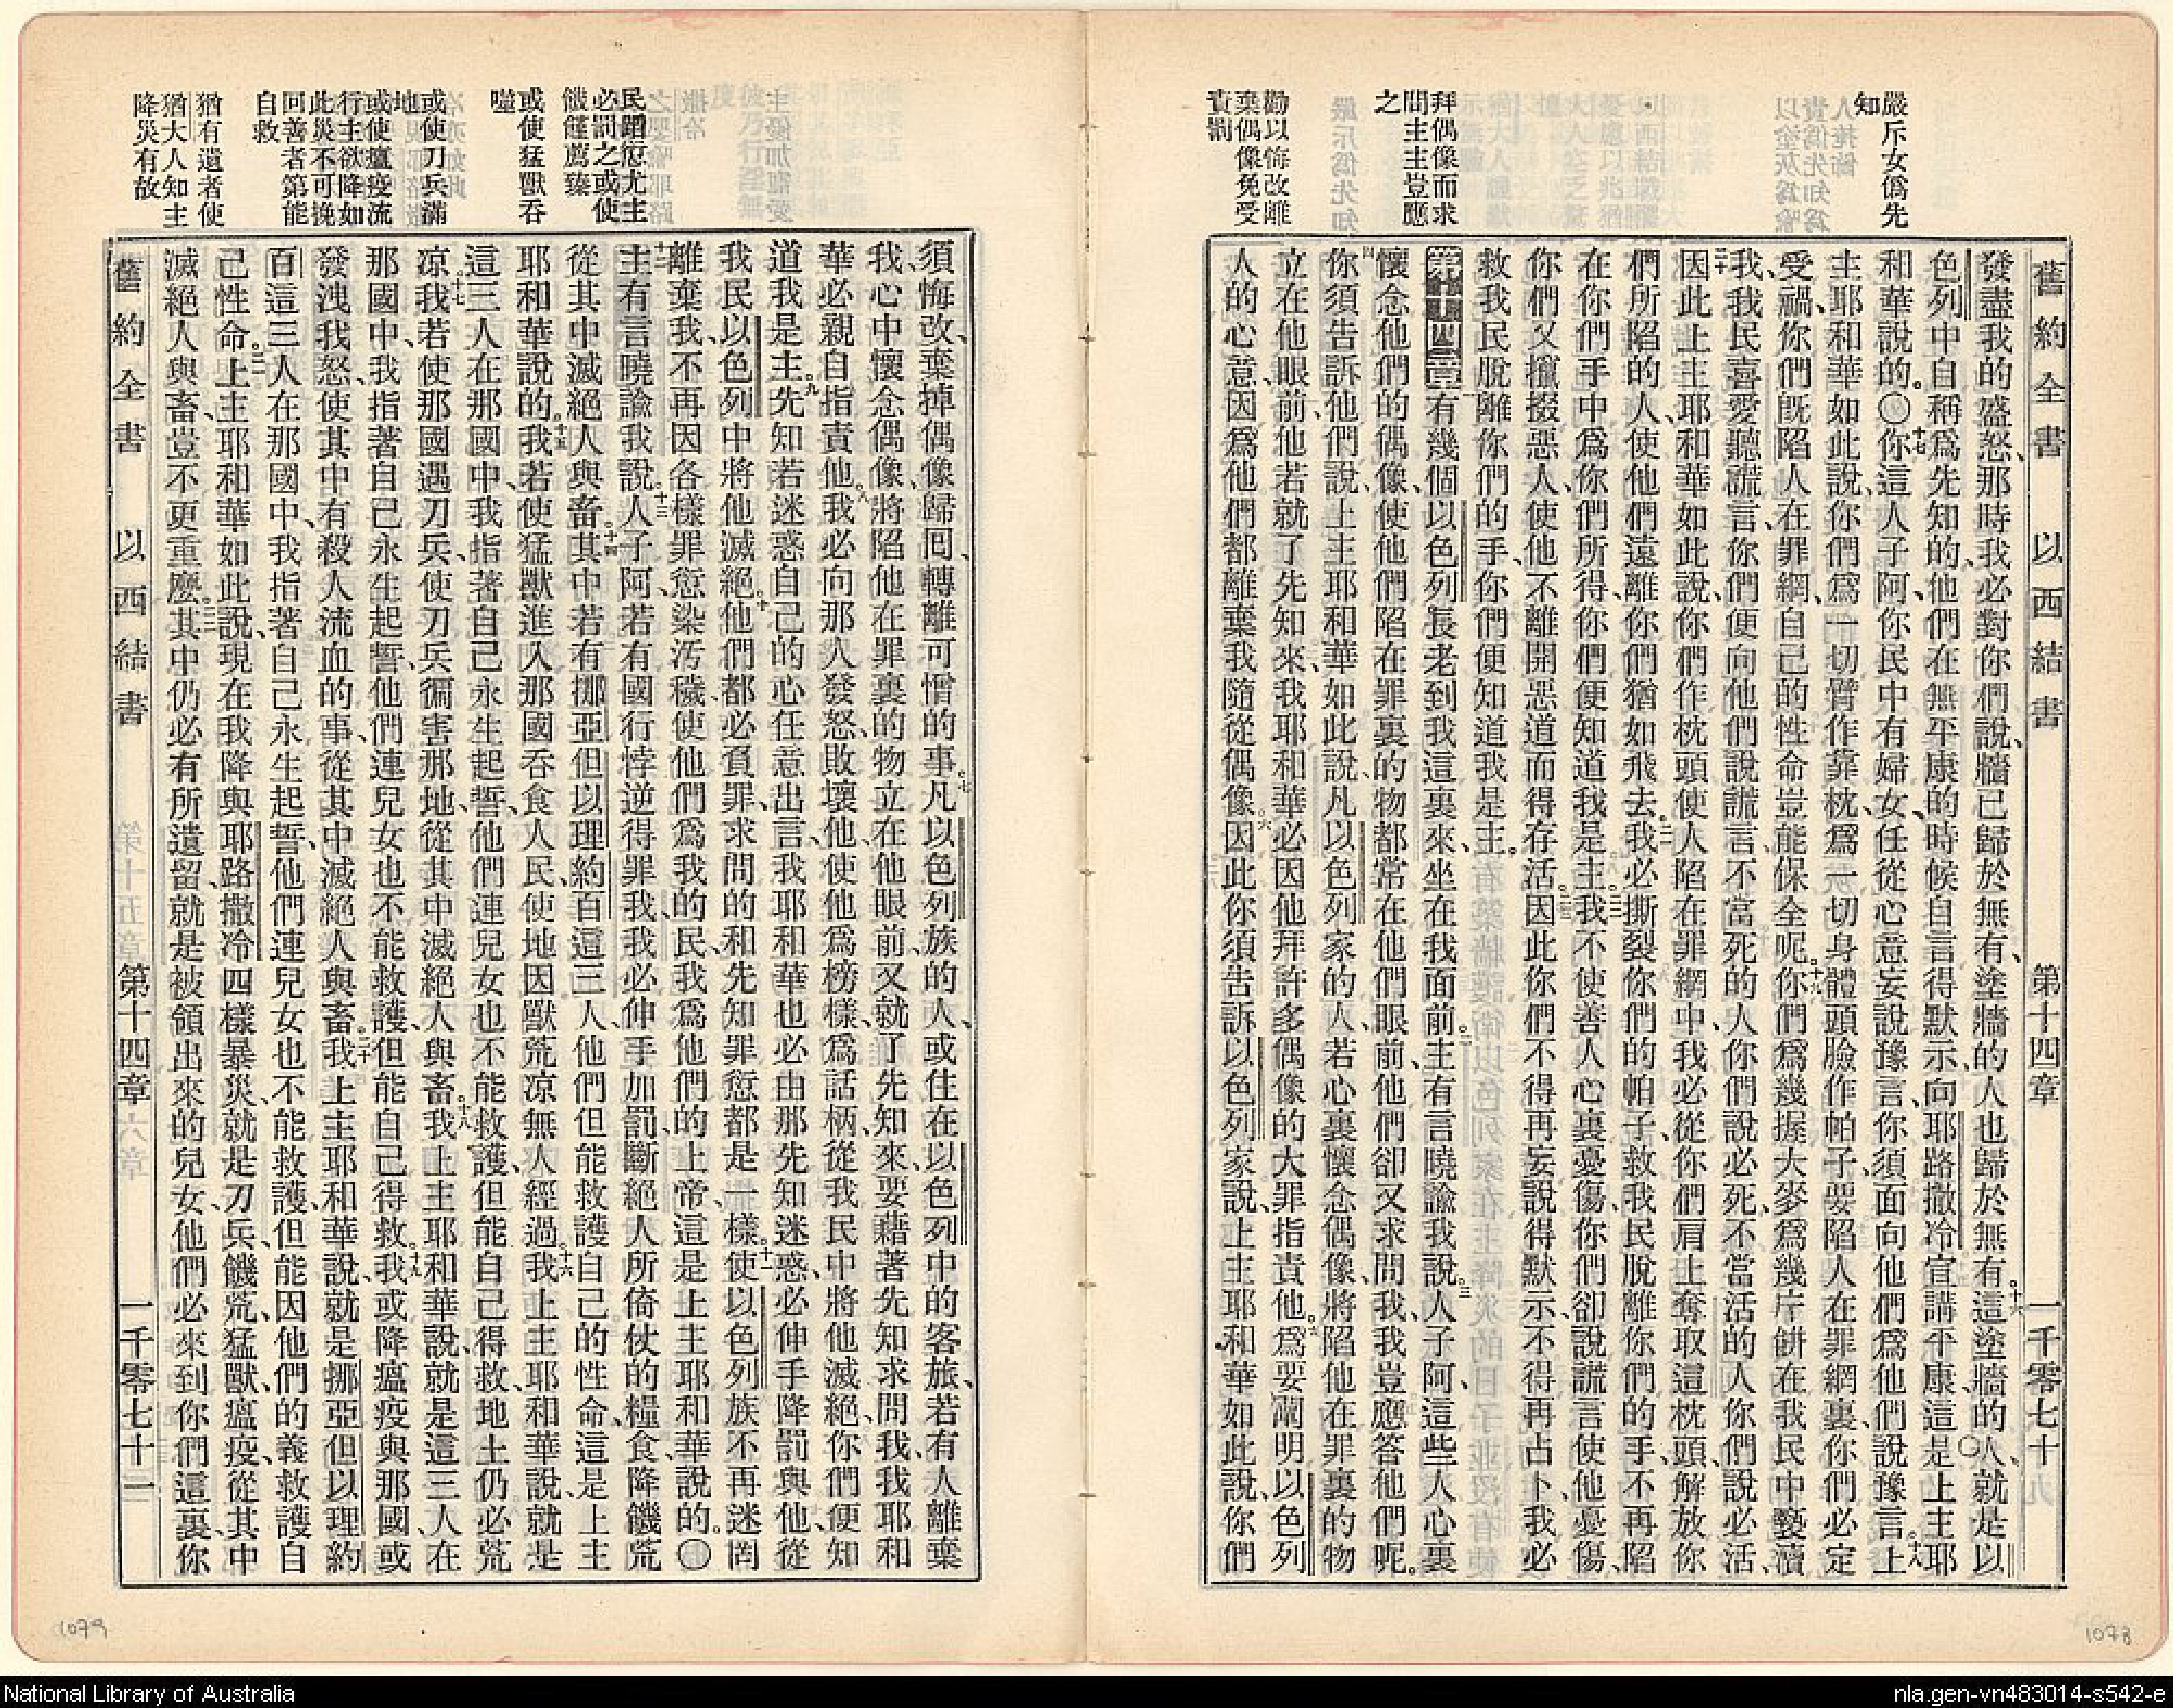 舊約全書 以西結書 第十四章 一千零七十
嚴斥女僞先
知
拜偶像而求
問主主豈應
之
勸以悔改離
棄偶像免受
責罰
發盡我的盛怒、那時我必對你們說、牆已歸於無有、塗牆的人也歸於無有。十六這塗牆的人、就是以
色列中自稱爲先知的、他們在無平康的時候、自言得默示、向耶路撒冷宣講平康、這是上主耶
和華說的。〇十七你這人子阿、你民中有婦女、任從心意妄說豫言、你須面向他們、爲他們說豫言。十八上
主耶和華如此說、你們爲一切臂作靠枕、爲一切身體頭臉作帕子、要陷人在罪網裏、你們必定
受禍、你們旣陷人在罪網、自己的性命豈能保全呢。十九你們爲幾握大麥、爲幾片餅、在我民中褻瀆
我、我民喜愛聽謊言、你們便向他們說謊言、不當死的人、你們說必死、不當活的人、你們說必活、
二十因此上主耶和華如此說、你們作枕頭使人陷在罪網中、我必從你們肩上奪取這枕頭、解放你
們所陷的人、使他們遠離你們猶如飛去。二一我必撕裂你們的帕子、救我民脫離你們的手、不再陷
在你們手中、爲你們所得、你們便知道我是主。二二我不使善人心裏憂傷、你們卻說謊言使他憂傷、
你們又攛掇惡人、使他不離開惡道而得存活。二三因此你們不得再妄說得默示、不得再占卜、我必
救我民脫離你們的手、你們便知道我是主。
第十四章 有幾個以色列長老到我這裏來、坐在我面前。二主有言曉諭我說。三人子阿、這些人心裏
懷念他們的偶像、使他們陷在罪裏的物、都常在他們眼前、他們卻又求問我、我豈應答他們呢。
四你須告訴他們說、上主耶和華如此說、凡以色列家的人、若心裏懷念偶像、將陷他在罪裏的物
立在他眼前、他若就了先知來、我耶和華必因他拜許多偶像的大罪指責他。五爲要闡明以色列
人的心意、因爲他們都離棄我隨從偶像。六因此你須告訴以色列家說、上主耶和華如此說、你們
民蹈愆尤主
必罰之或使
饑饉薦臻
或使猛獸吞
噬
或使刀兵滿
地
或使瘟疫流
行主欲降如
此災不可挽
回善者第能
自救
猶有遺者使
猶大人知主
降災有故
須悔改、棄掉偶像、歸回、轉離可憎的事。七凡以色列族的人、或住在以色列中的客旅、若有人離棄
我、心中懷念偶像、將陷他在罪裏的物立在他眼前、又就了先知來、要藉著先知求問我、我耶和
華必親自指責他。八我必向那人發怒、敗壞他、使他爲榜樣、爲話柄、從我民中將他滅絕、你們便知
道我是主。九先知若迷惑自己的心、任意出言、我耶和華也必由那先知迷惑、必伸手降罰與他、從
我民以色列中將他滅絕。十他們都必負罪、求問的和先知罪愆都是一樣。十一使以色列族不再迷罔
離棄我、不再因各樣罪愆染污穢、使他們爲我的民、我爲他們的上帝、這是上主耶和華說的。〇
十二主有言曉諭我說。十三人子阿、若有國行悖逆得罪我、我必伸手加罰、斷絕人所倚仗的糧食、降饑荒
從其中滅絕人與畜。十四其中若有挪亞但以理約百這三人、他們但能救護自己的性命、這是上主
耶和華說的。十五我若使猛獸進入那國、吞食人民、使地因獸荒凉、無人經過。十六我上主耶和華說、就是
這三人在那國中、我指著自己永生起誓、他們連兒女也不能救護、但能自己得救、地土仍必荒
凉。十七我若使那國遇刀兵、使刀兵徧害那地、從其中滅絕人與畜。十八我上主耶和華說、就是這三人在
那國中、我指著自己永生起誓、他們連兒女也不能救護、但能自己得救。十九我或降瘟疫與那國、或
發洩我怒、使其中有殺人流血的事、從其中滅絕人與畜。二十我上主耶和華說、就是挪亞但以理約
百這三人在那國中、我指著自己永生起誓、他們連兒女也不能救護、但能因他們的義救護自
己性命。二一上主耶和華如此說、現在我降與耶路撒冷四樣暴災、就是刀兵、饑荒、猛獸、瘟疫、從其中
滅絕人與畜、豈不更重麽。二二其中仍必有所遺留、就是被領出來的兒女、他們必來到你們這裏、你
舊約全書 以西結書 第十四章 一千零七十一
1079
1078
National Library of Australia
nla.gen-vn483014-s542-e